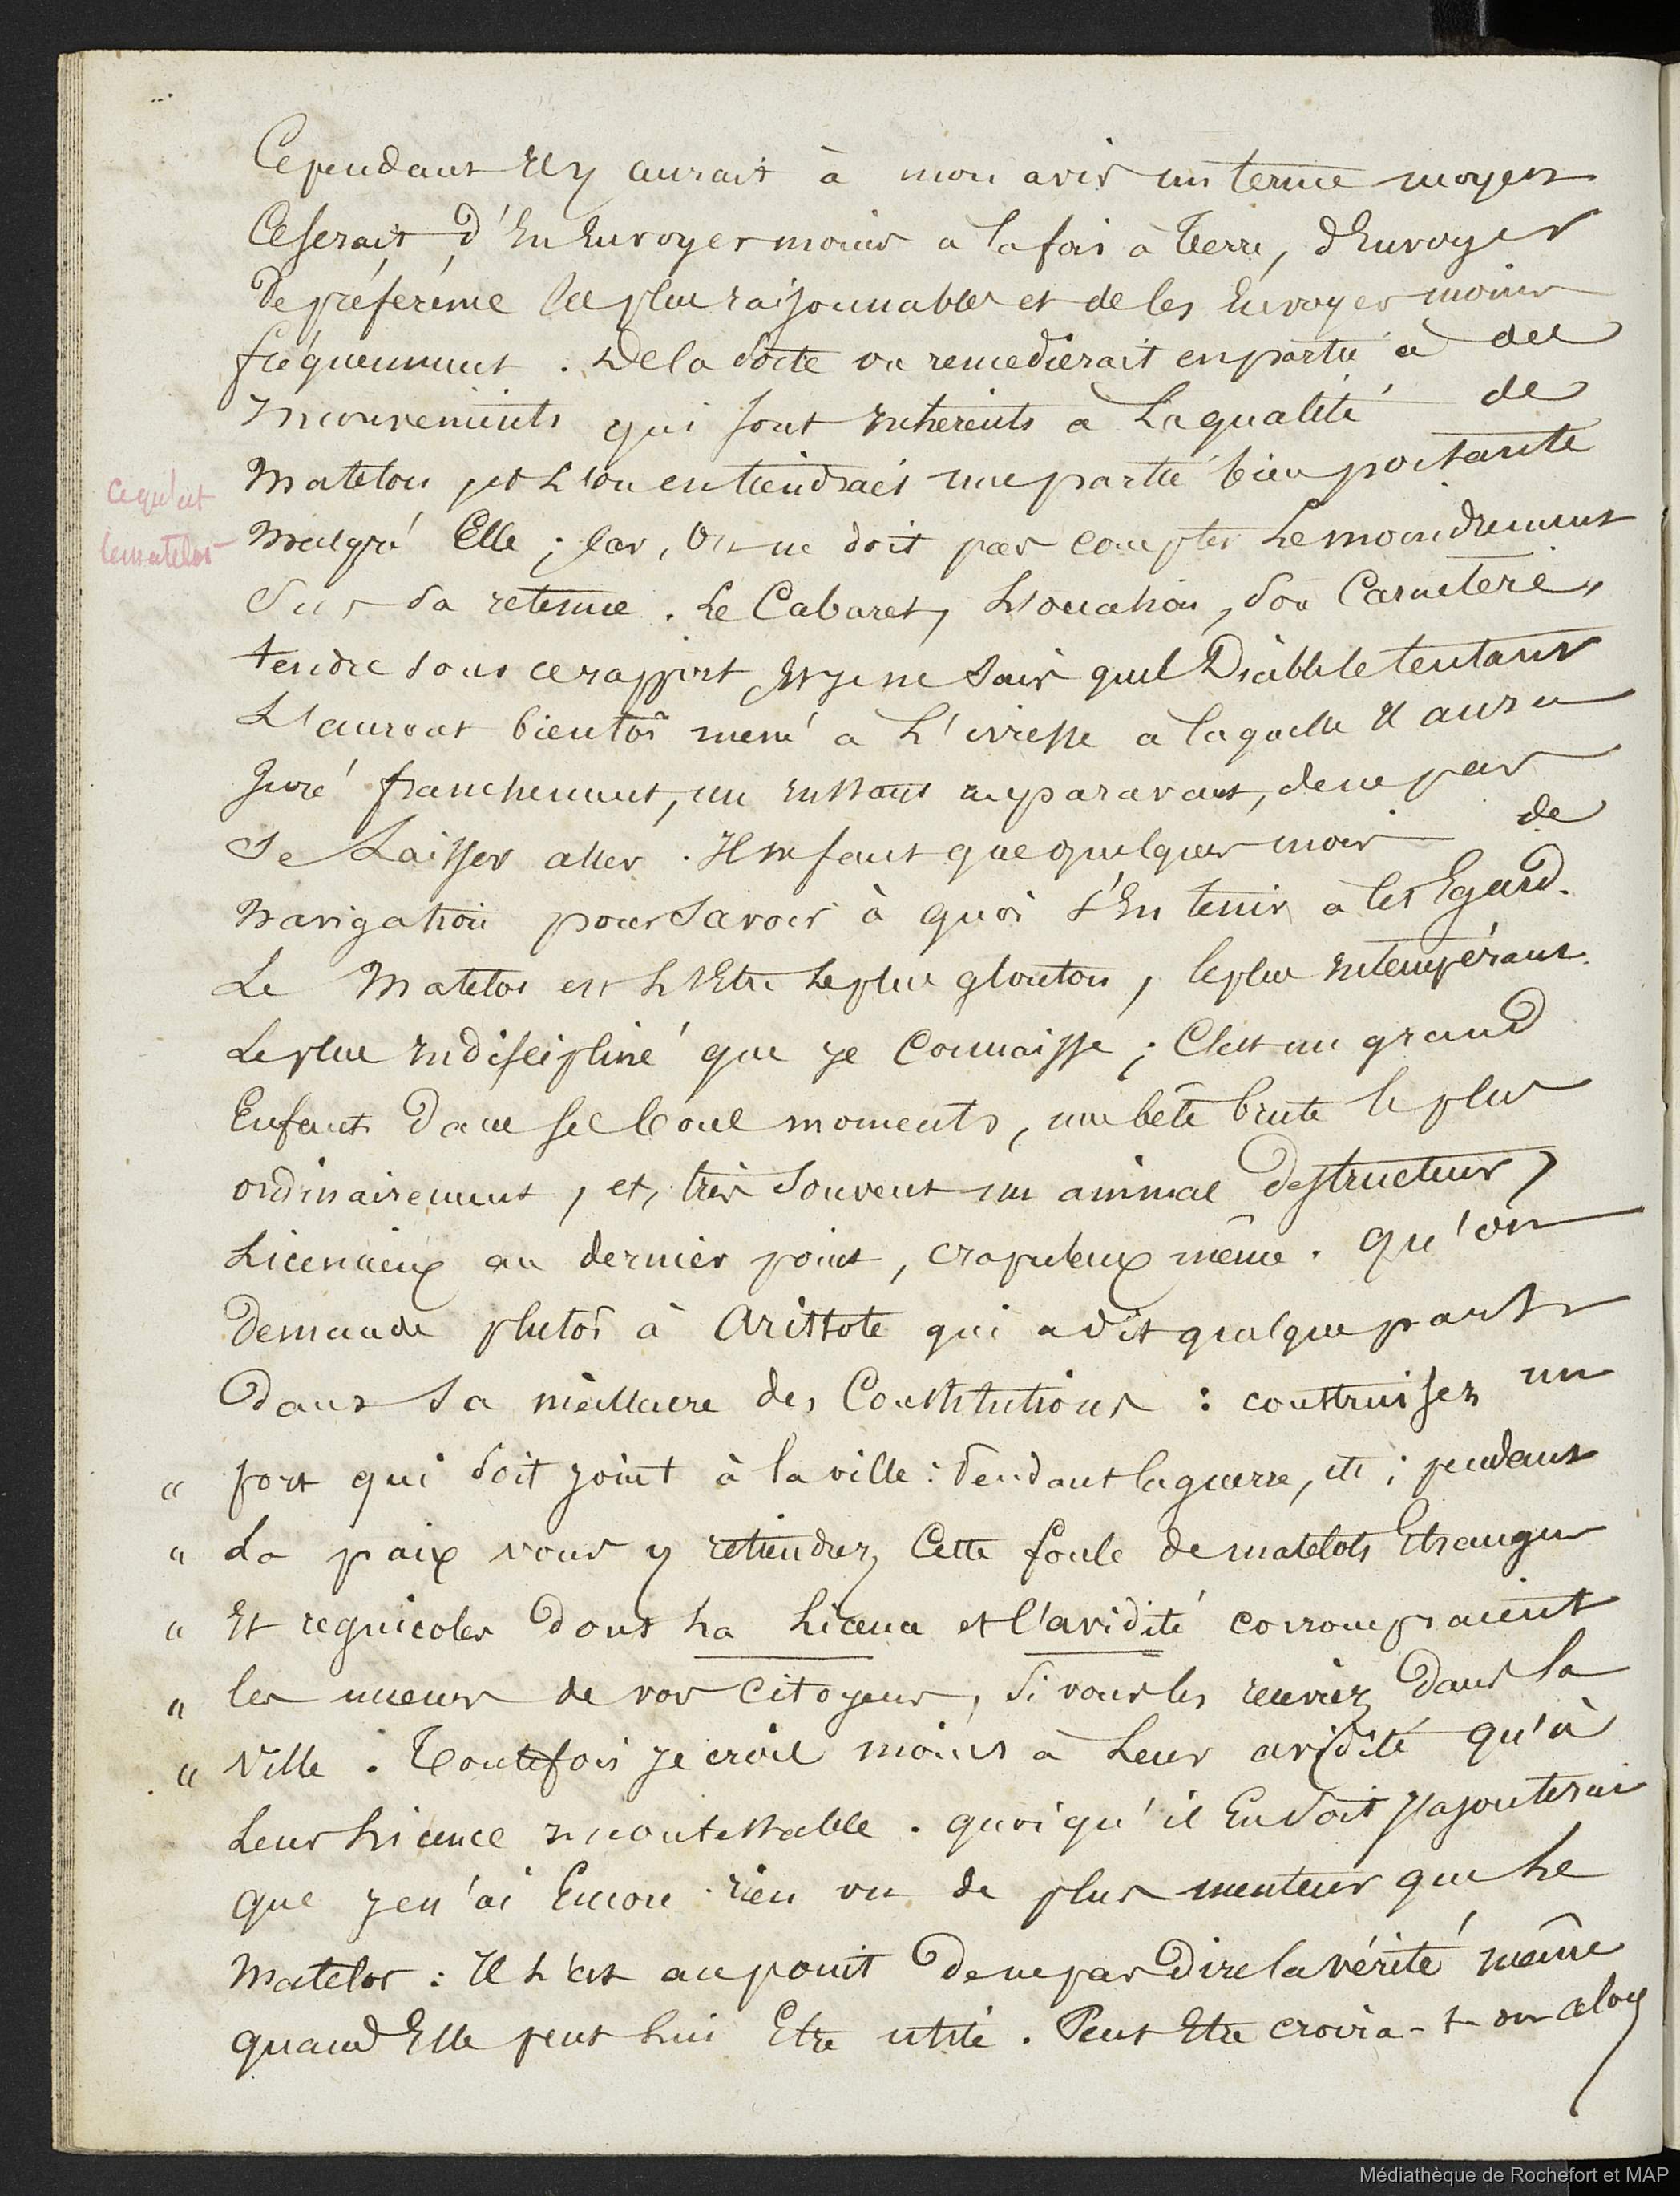 Cependant Il y aurait à mon avis un terme moyen
Ce serait d'En Envoyer moins a la fois à Terre, d'Envoyer
De préférence les plus raisonnables et de les Envoyer moins
fréquemment . De la sorte on remedierait en partie à des
Inconvenients qui sont Inherents à La qualité de
Matelots, et L'on en tiendrait une partie bien portante
Ce qu'est
le matelot
Malgré Elle ; Car, On ne doit pas compter Le moindrement
Sur sa retenue . Le Cabaret, L'occasion, son Caractère,
tendre sous ce rapport, Et je ne sais quel Diable le tentant
L'auront bientôt mené à L'ivresse a laquelle Il aura
Juré franchement, un Instant auparavant, de ne pas
Se Laisser aller . Il ne faut que quelques mois de
Navigation pour Savoir à quoi s'En tenir a cet Egard.
Le Matelot est L'Etre Le plus glouton, le plus Intempérant
Le plus Indiscipliné que je Connaisse ; C'est un grand
Enfant Dans ses bons moments, une bête brute le plus
ordinairement, et, très Souvent un animal Destructeur,
Licencieux au dernier point, crapuleux même . Qu'on
Demande plutôt à Aristote qui a dit quelque part
Dans Sa meilleure des Constitutions : construisez un
" fort qui soit joint à la ville : Pendant la guerre, etc ; pendant
" La paix vous y retiendrez Cette foule de matelots Etrangers
" Et regnicoles Dont La Licence et l'avidité corrompraient
" les mœurs de vos Citoyens, Si vous les receviez Dans la
" Ville . Toutefois je crois moins à Leur avidité qu'à
Leur Licence Incontestable . Quoiqu'il En soit J'ajouterai
Que je n'ai Encore rien vu de plus menteur que Le
Matelot : Il L'est au point De ne pas Dire la vérité même
quand Elle peut Lui Etre utile . Peut Etre croira-t-on alors
Médiathèque de Rochefort et MAP